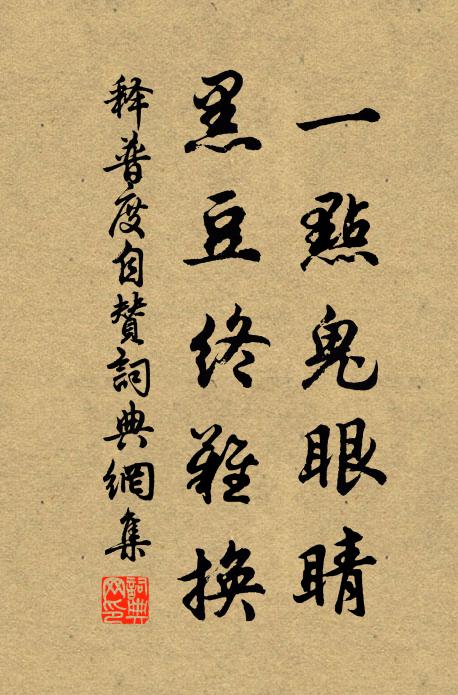 一點鬼眼睛
黑豆終難換
释普度自赞詞典網集
詞典网印